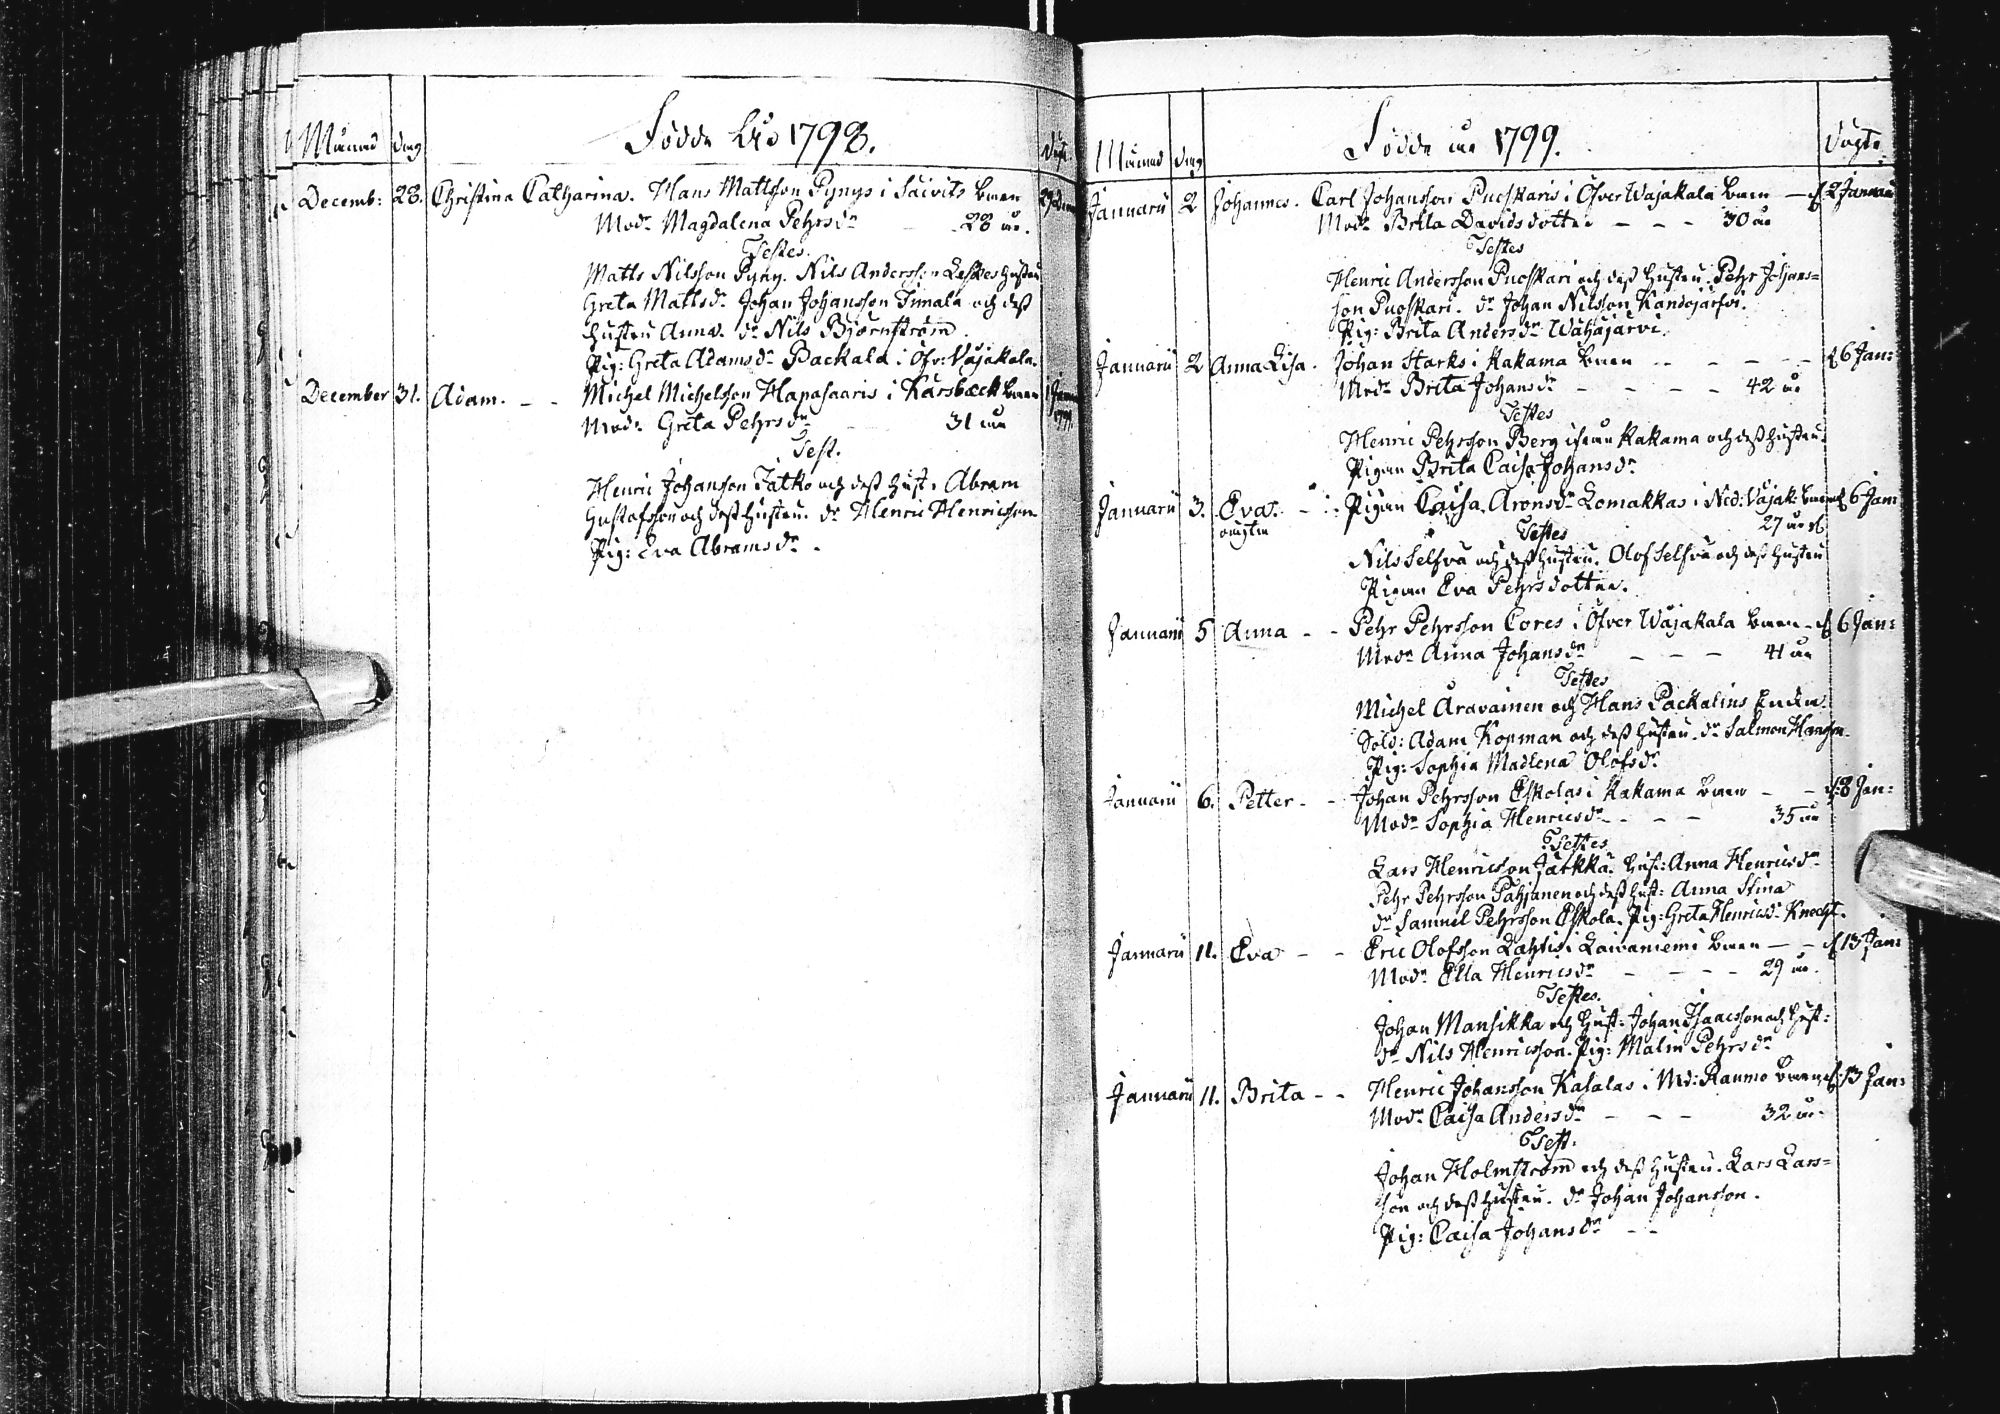 Månad dag Födde Åhr 1798. döpt
Decemb: 28. Christina Catharina. Hans Mattsson Pynys i Säivits barn 29 Dec
Modr Magdalena Pehrsdr 28 år.
Testes.
Matts Nilsson Pyny. Nils Andersson Leskes hustru
Greta Mattsdr Johan Johansson Timala och dess
hustru Anna. dr Nils Björnström.
Pig: Greta Adamsdr Packala i Öfv: Våjakala.
December 31. Adam. - - Michel Michelsson Hapasaaris i Karsbäck barn 1 Janu
Modr Greta Pehrsdr 31 åra 1799.
Test.
Henric Johanson Jatko och dess hust: Abram
Gustafsson och dess hustru. dr Henric Henricsson
Pig: Eva Abramsdr.
Månad dag Födde åra 1799. döpte
Januarii 2 Johannes. Carl Johansson Puoskaris i Öfver Wåjakala barn - d. 2 Januarii
Modr Brita Davidsdotter - - - 30 år
Testes
Henric Andersson Puoskari och dess hustru. Pehr Johans=
son Puoskari. dr Johan Nilsson Kandojärfvi.
Pig: Brita Andersdr Wähäjärvi.
Januarii 2 Anna Lisa. Johan Starks i Kakama barn - - - - d 6 Jan:
Modr Brita Johansdr - - - - 42 år
Testes
Henric Pehrsson Berg ifrån Kakama och dess hustru.
Pigan Brita Caisa Johansdr
Januarii 3. Eva. - Pigan Caisa Aronsdr Lomakkas i Ned: Våjak: barn d 6 Jan:
oägta 27 år
Testes
Nils Selfvä och dess hustru. Olof Selfvä och dess hustru
Pigan Eva Pehrsdotter.
Januarii 5 Anna - - Pehr Pehrsson Cores i Öfver Wåjakala barn - d 6 Jan:
Modr Anna Johansdr - - - 41 år
Testes
Michel Aravainen och Hans Packalins Encka.
Sold: Adam Kopman och dess hustru. dr Salmon Hansson.
Pig: Sophia Madlena Olofsdr
Januarii 6. Petter - - Johan Pehrsson Eskolas i Kakama barn - - d: 8 Jan:
Modr Sophia Henricsdr - - - 35 år
Testes
Lars Henricsson Jarkkä. hust: Anna Henricsdr
Pehr Pehrsson Pahjanen och dess hust: Anna Stina
dr Samuel Pehrsson Eskola. Pig: Greta Henricsdr Knecht.
Januarii 11. Eva - - Eric Olofsson Lahtis i Laivaniemi barn - - d 13 Jan:
Modr Ella Henricsdr - - - - 29 år.
Testes.
Johan Mansikka och hust: Johan Isaacsson och hust:
dr Nils Henricsson. Pig: Malin Pehrsdr
Januarii 11. Brita - - Henric Johansson Kasalas i Md: Raumo barn d 13 Jan:
Modr Caisa Andersdr - - - 32 år.
Test.
Johan Holmström och dess hustru. Lars Lars=
son och dess hustru. dr Johan Johansson.
Pig: Caisa Johansdr - -